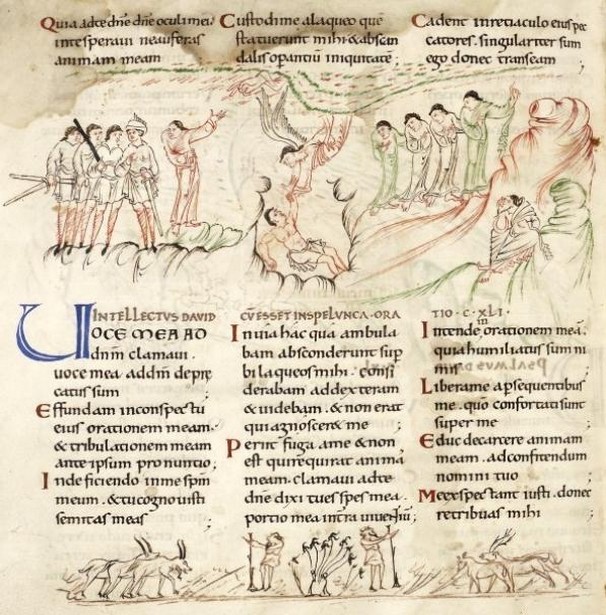 Quia adte dn̄e dn̄e oculi mei
intesperaui neauferas
animam meam
Custodi me alaqueo quē
statuerunt mihi & abscan
dalis opantiū iniquitatē ;
Cadent inretiaculo eius pec
catores . singulariter sum
ego donec transeam ;
INTELLECTVS DAVID CŪ ESSET INSPELVNCA · ORATIO · C · XLI ·
UOCE MEA AD
dn̄m clamaui ·
uoce mea addn̄m depre
catus sum
Effundam inconspectu
eius orationem meam ·
& tribulationem meam
ante ipsum pronuntio ;
Indeficiendo inme spm̄
meum · & tu cognouisti
semitas meas ;
Inuia hac qua ambula
bam absconderunt sup
bi laqueos mihi · consi
derabam addexteram
& uidebam · & non erat
qui agnosceret me ;
Periit fuga ame & non
est qui requirat animā
meam · clamaui adte
dn̄e dixi tu es spes mea ·
portio mea interra uiuentiū ;
Intende inorationem meā ·
quia humiliatus sum ni
mis ;
Libera me apersequentibus
me · quia confortati sunt
super me ;
Educ decarcere animam
meam · adconfitendum
nomini tuo ;
Me expectant iusti · donec
retribuas mihi ;